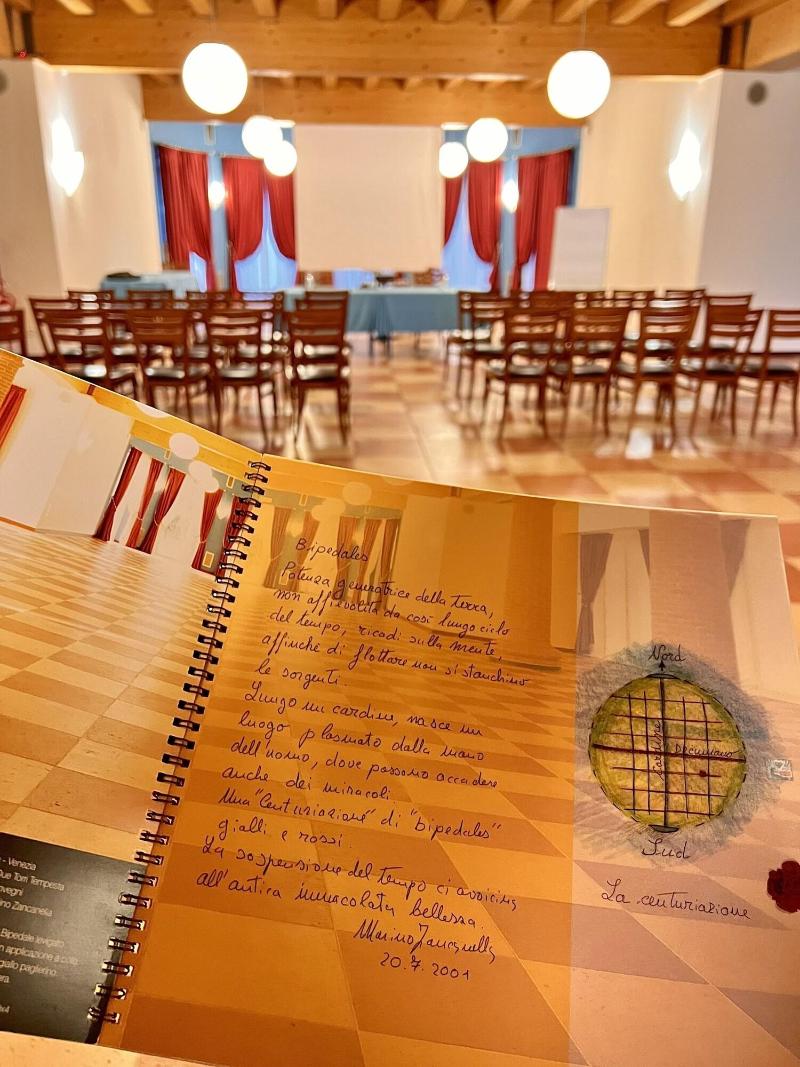 - Venezia
Due Torri Tempesta
ino Zancanella
Bipedale levigato
n applicazione a c
giallo paglierino
Bipedales
Potenza generatrice della terra,
non affievolita da così lungo ciclo
del tempo, ricadi sulla mente,
affinché di flottare non si stanchino
le sorgenti.
Lungo un cardine, nasce un
luogo plasmato dalla mano
dell'uomo, dove possono accadere
anche dei miracoli.
Una "Centuriazione" di "bipedales"
gialli e rossi.
La sospensione del tempo ci avvicina
all'antica immacolata bellezza.
Marino Zancanella
20.7.2001
Nord
Cardine
Decumano
Sud
La centuriazione